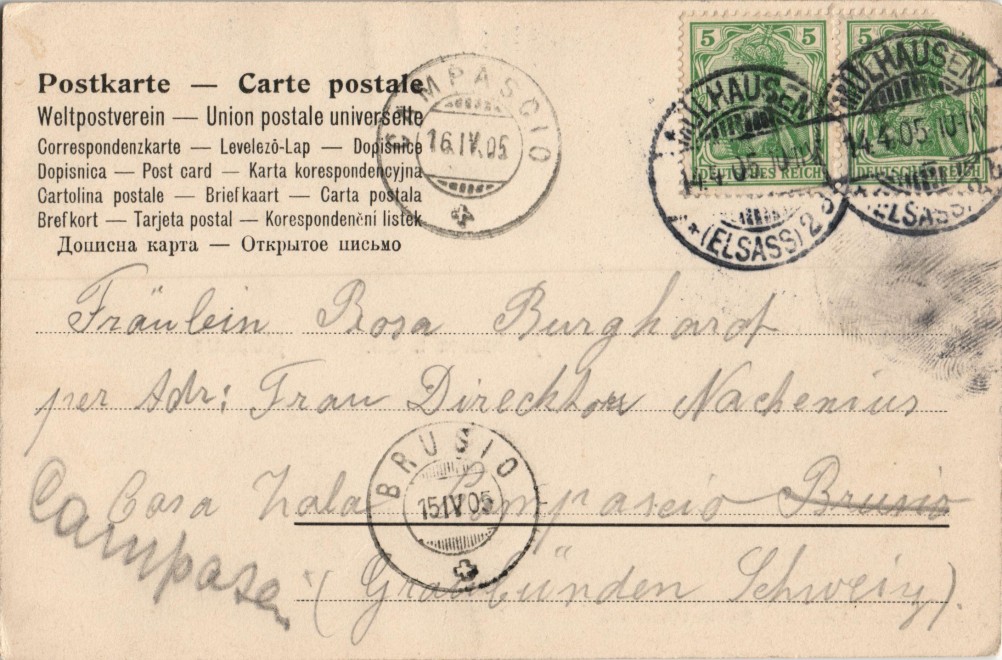 Postkarte — Carte postale
Weltpostverein — Union postale universelle
Correspondenzkarte — Levelező-Lap — Dopisnice
Dopisnica — Post card — Karta korespondencyjna
Cartolina postale — Briefkaart — Carta postala
Brefkort — Tarjeta postal — Korespondenční listek
Дописна карта — Открытое письмо
CAMPASCIO
16.IV.05
5 5
DEUTSCHES REICH DEUTSCHES REICH
MÜLHAUSEN
14.4.05 10-11V
*(ELSASS) 2
MÜLHAUSEN
14.4.05 10-11V
*(ELSASS) 2
Fräulein Rosa Burghardt
per Adr: Frau Direcktor Nachenius
Casa Zala Campascio Brusio
Campasc
(Graubünden Schweiz).
BRUSIO
15.IV.05